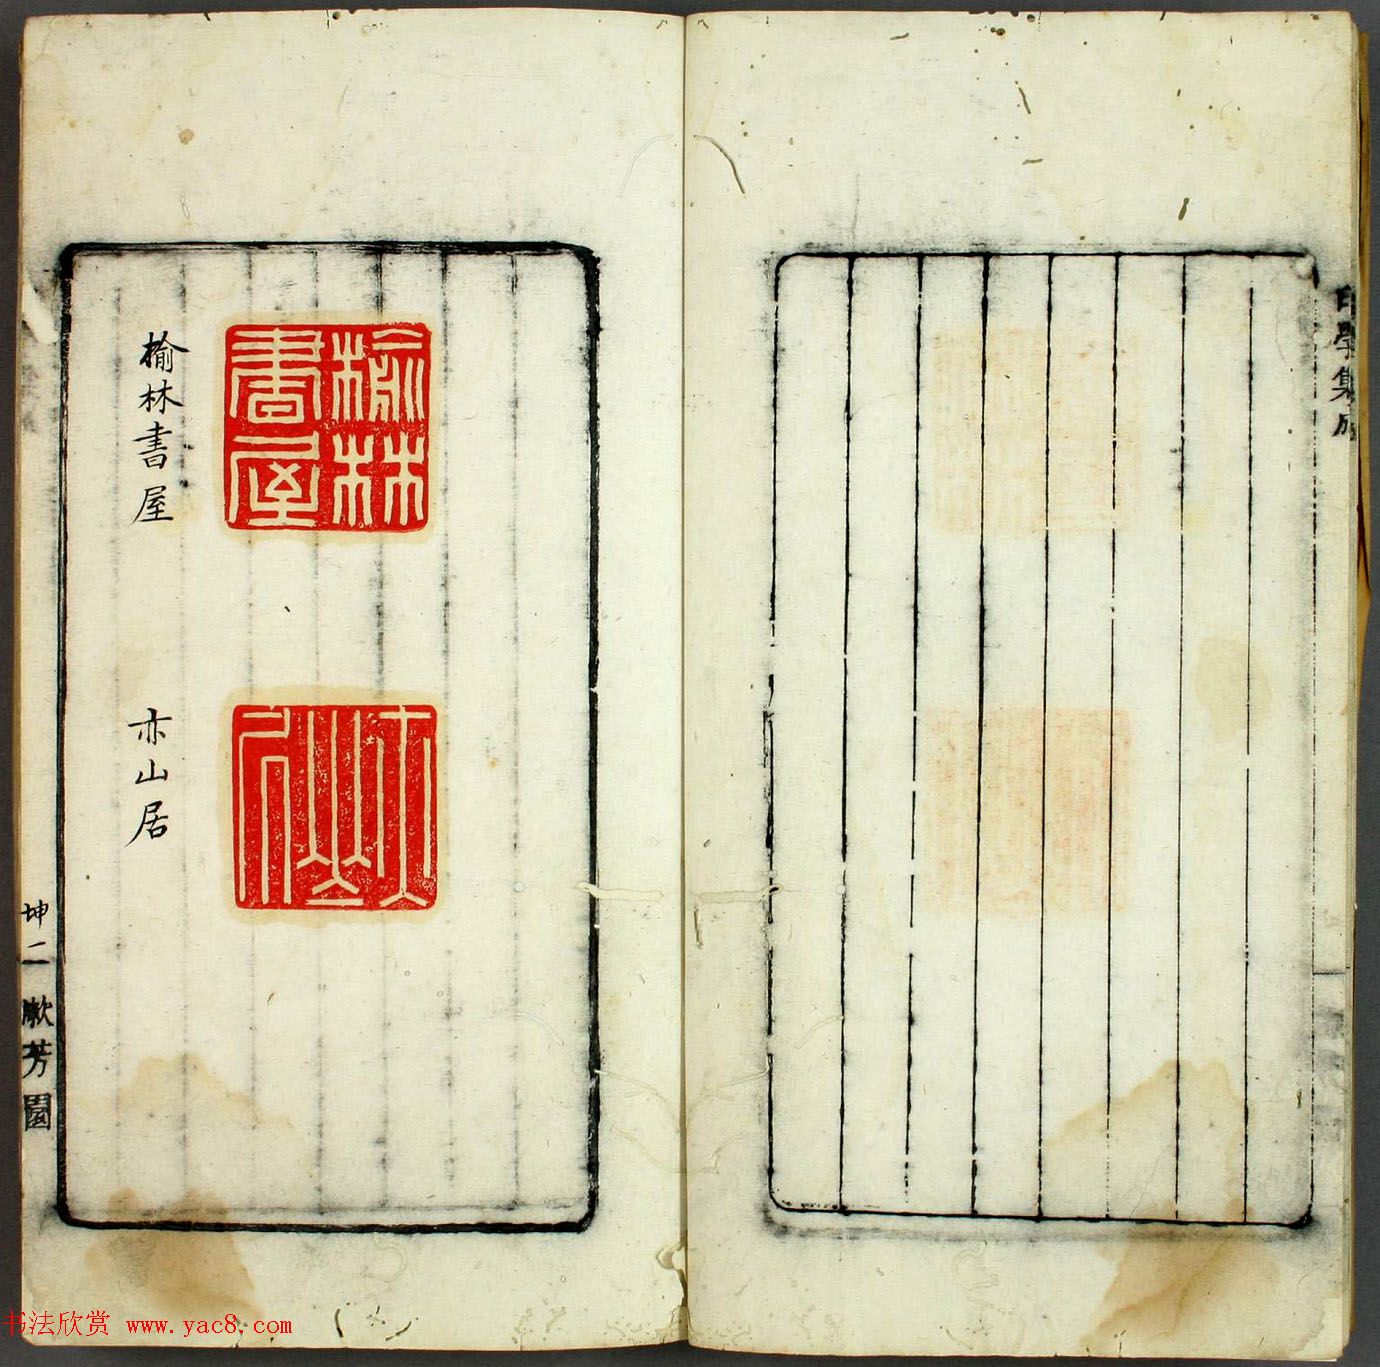 印學集成
榆林
書屋
榆林書屋
亦山居
亦山居
坤二 漱芳園
书法欣赏 www.yac8.com